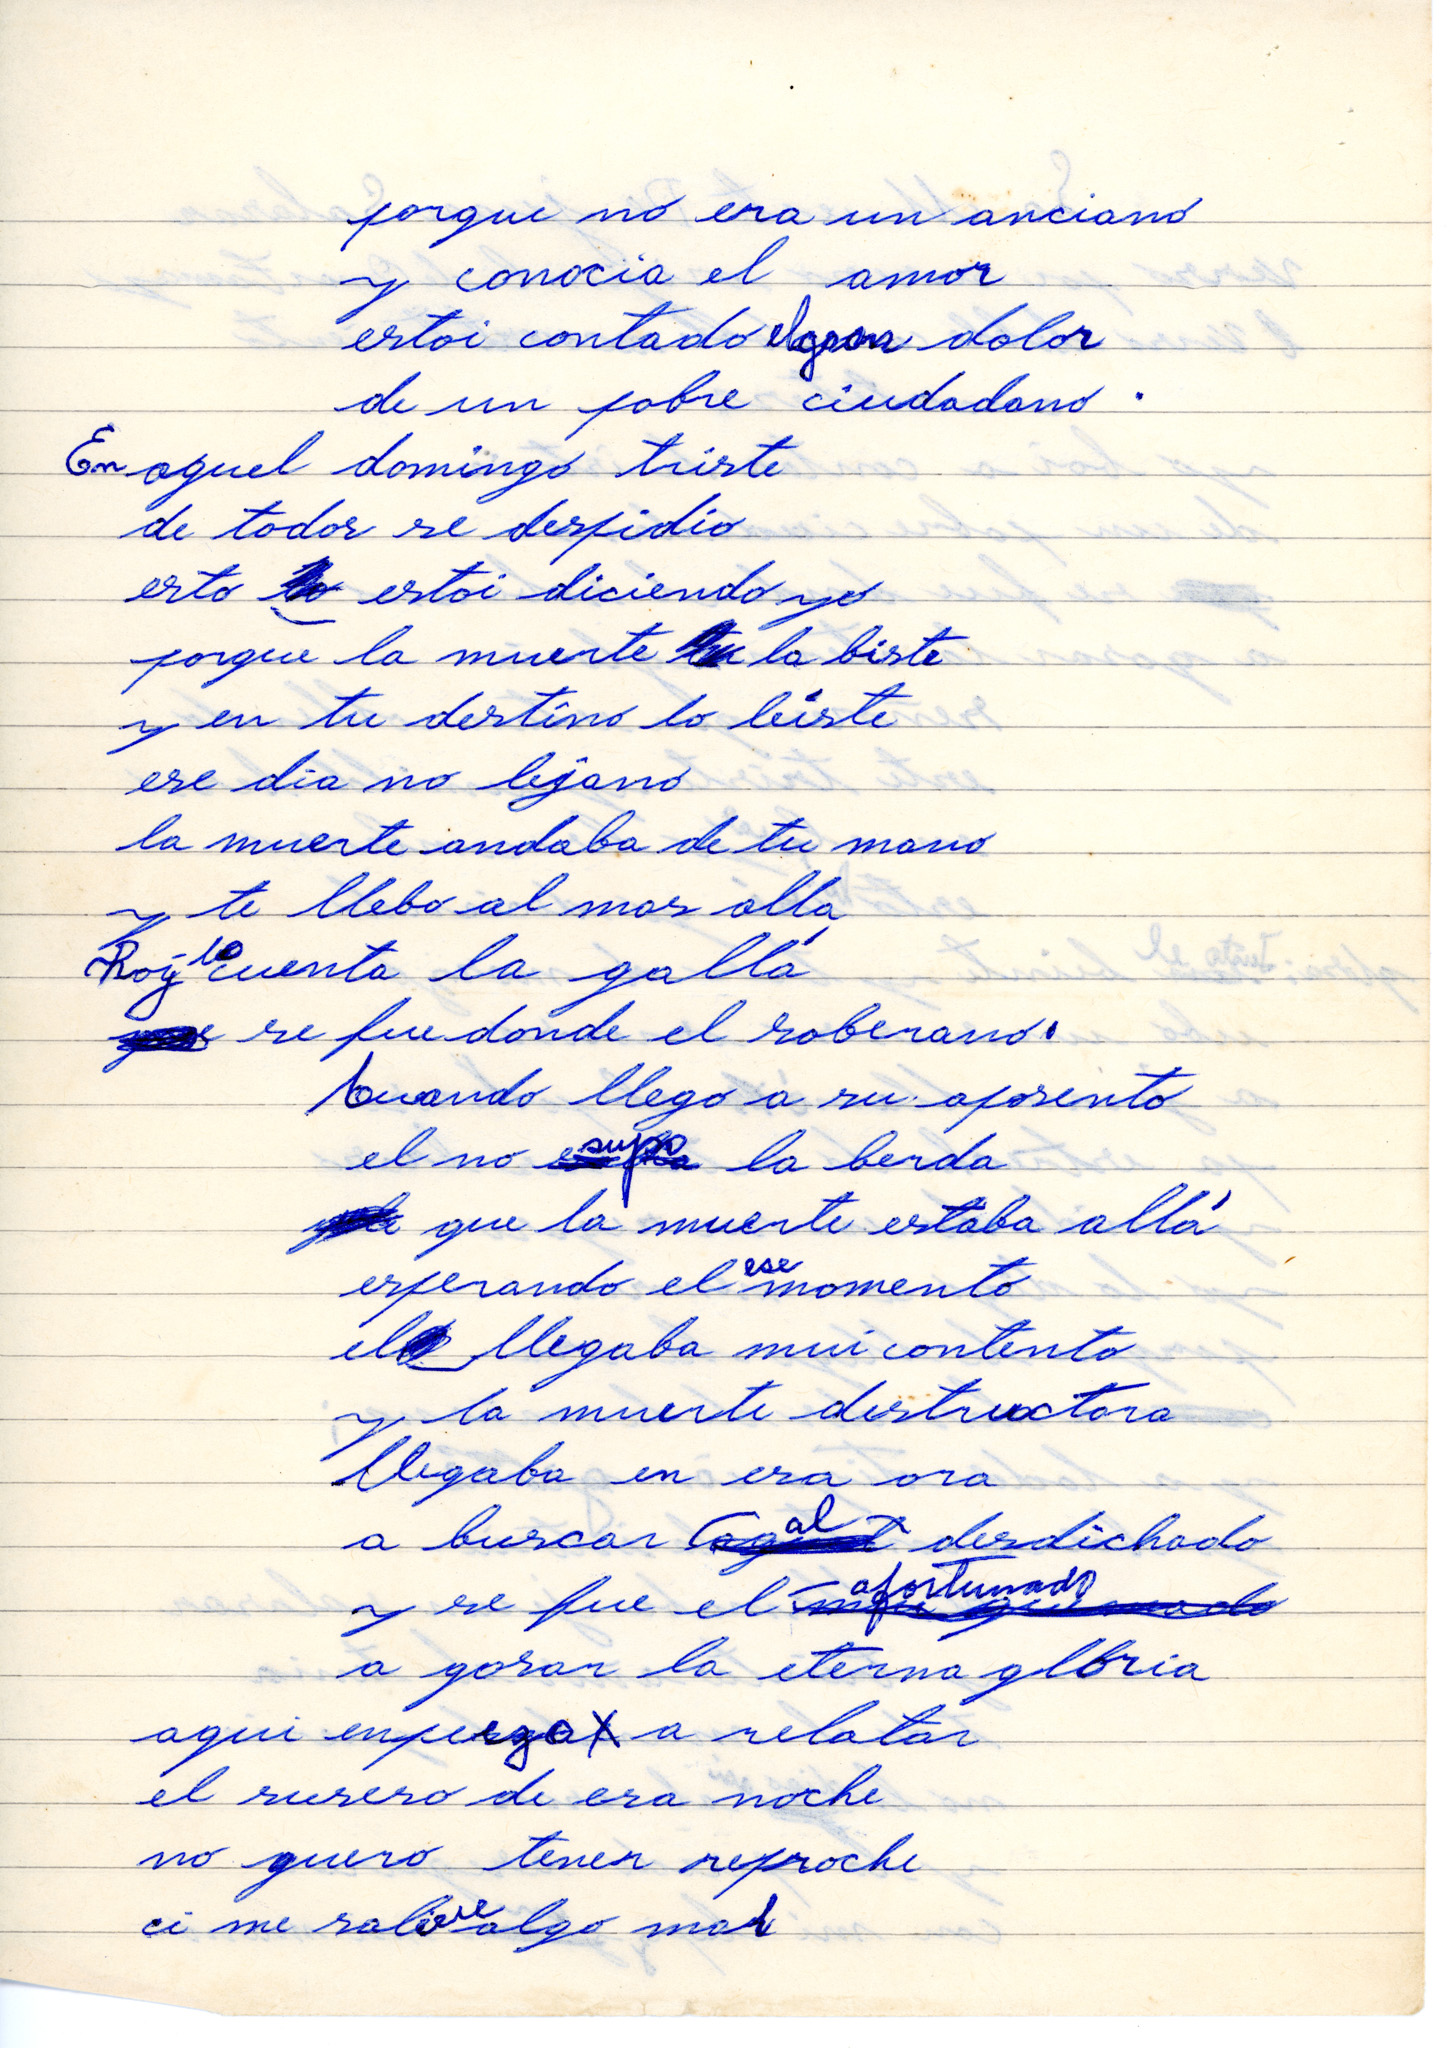 porque no era un anciano
y conocia el amor
estoi contado el gran dolor
de un pobre ciudadano.
En aquel domingo triste
de todos se despidio
esto lo estoi diciendo yo
porque la muerte tu la biste
y en tu destino lo leiste
ese dia no lejano
la muerte andaba de tu mano
y te llebo al mas allá
Hoy lo cuenta la gallá
se fue donde el soberano.
Cuando llego a su aposento
el no supo la berda
que la muerte estaba allá
esperando el ese momento
el llegaba mui contento
y la muerte destructora
llegaba en esa ora
a buscar al desdichado
y se fue el afortunado
a gosar la eterna gloria
aqui enpezo a relatar
el suseso de esa noche
no quero tener reproche
ci me saliere algo mal